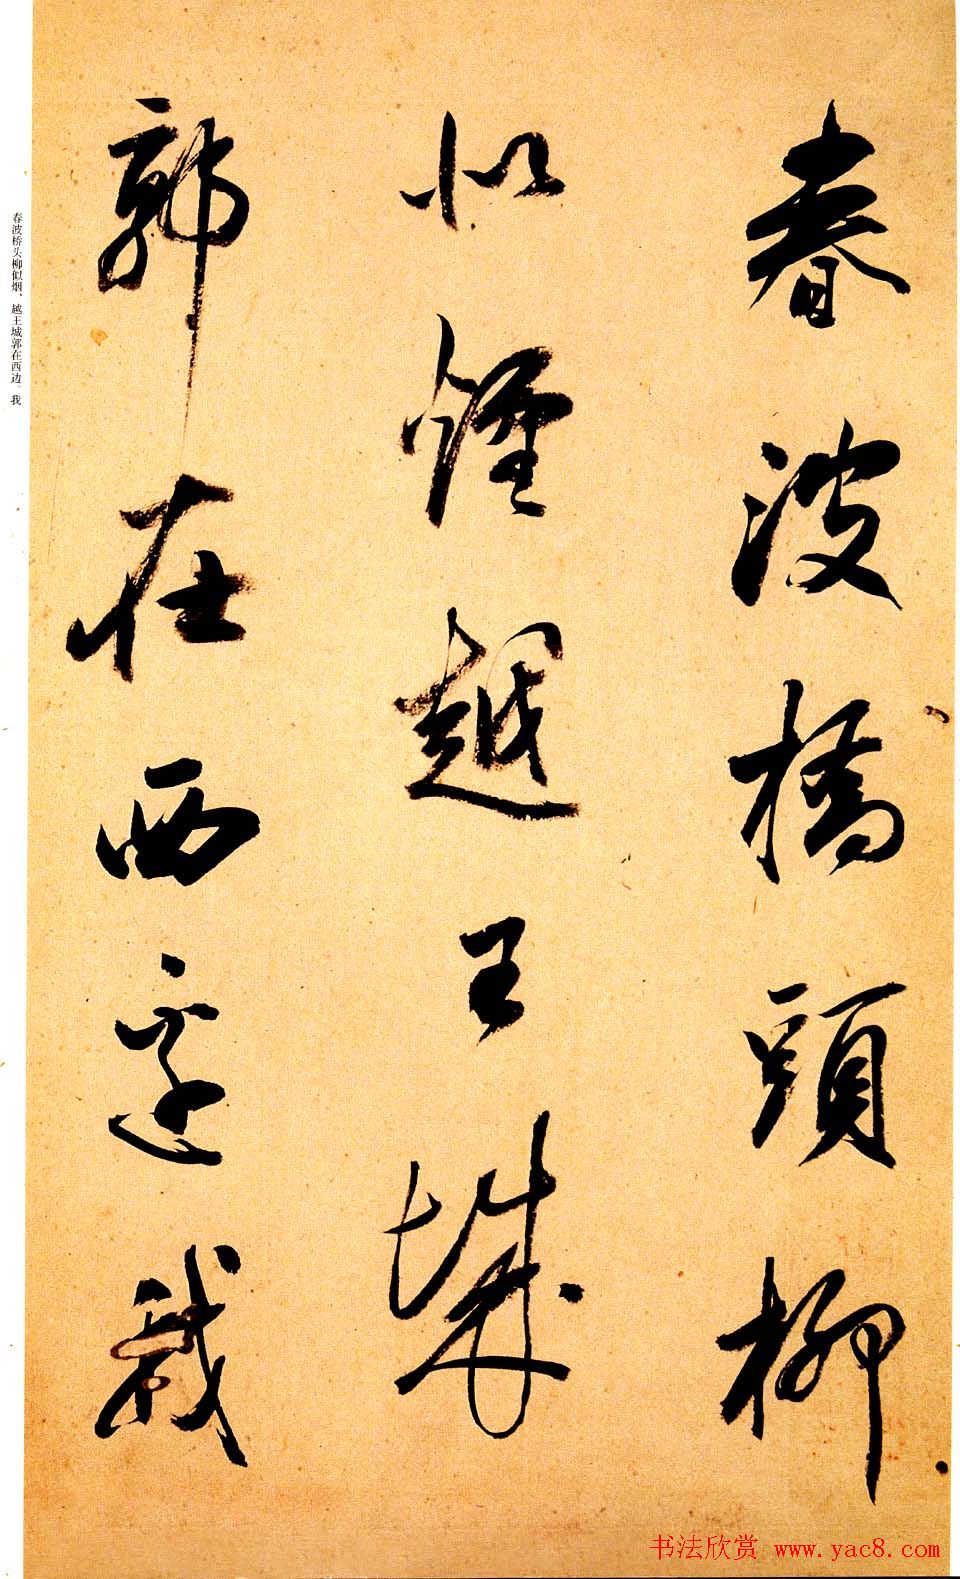 春波橋頭柳
似煙越王城
郭在西邊我
春波桥头柳似烟、越王城郭在西边。我
书法欣赏 www.yac8.com